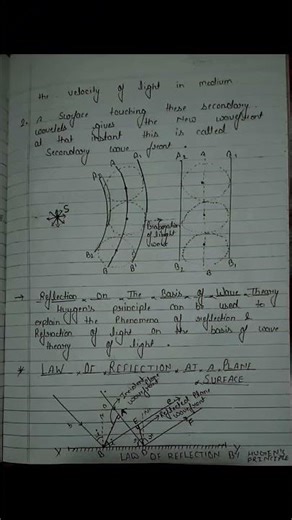 the velocity of light in medium
2. A surface touching these secondary
wavelets gives the new wavefront
at that instant this is called
Secondary wave front.
A2 A A1
S
B2 B B1
A2 A A1
B2 B B1
of light
wave
→ Reflection On The Basis of Wave Theory
Huygen's principle can be used to
explain the Phenomena of reflection &
Refraction of light on the basis of wave
theory of light.
* LAW OF REFLECTION AT A PLANE
SURFACE
Incident plane
wavefront
Reflected Plane
wavefront
X Y
LAW OF REFLECTION BY HUYGEN'S
PRINCIPLE